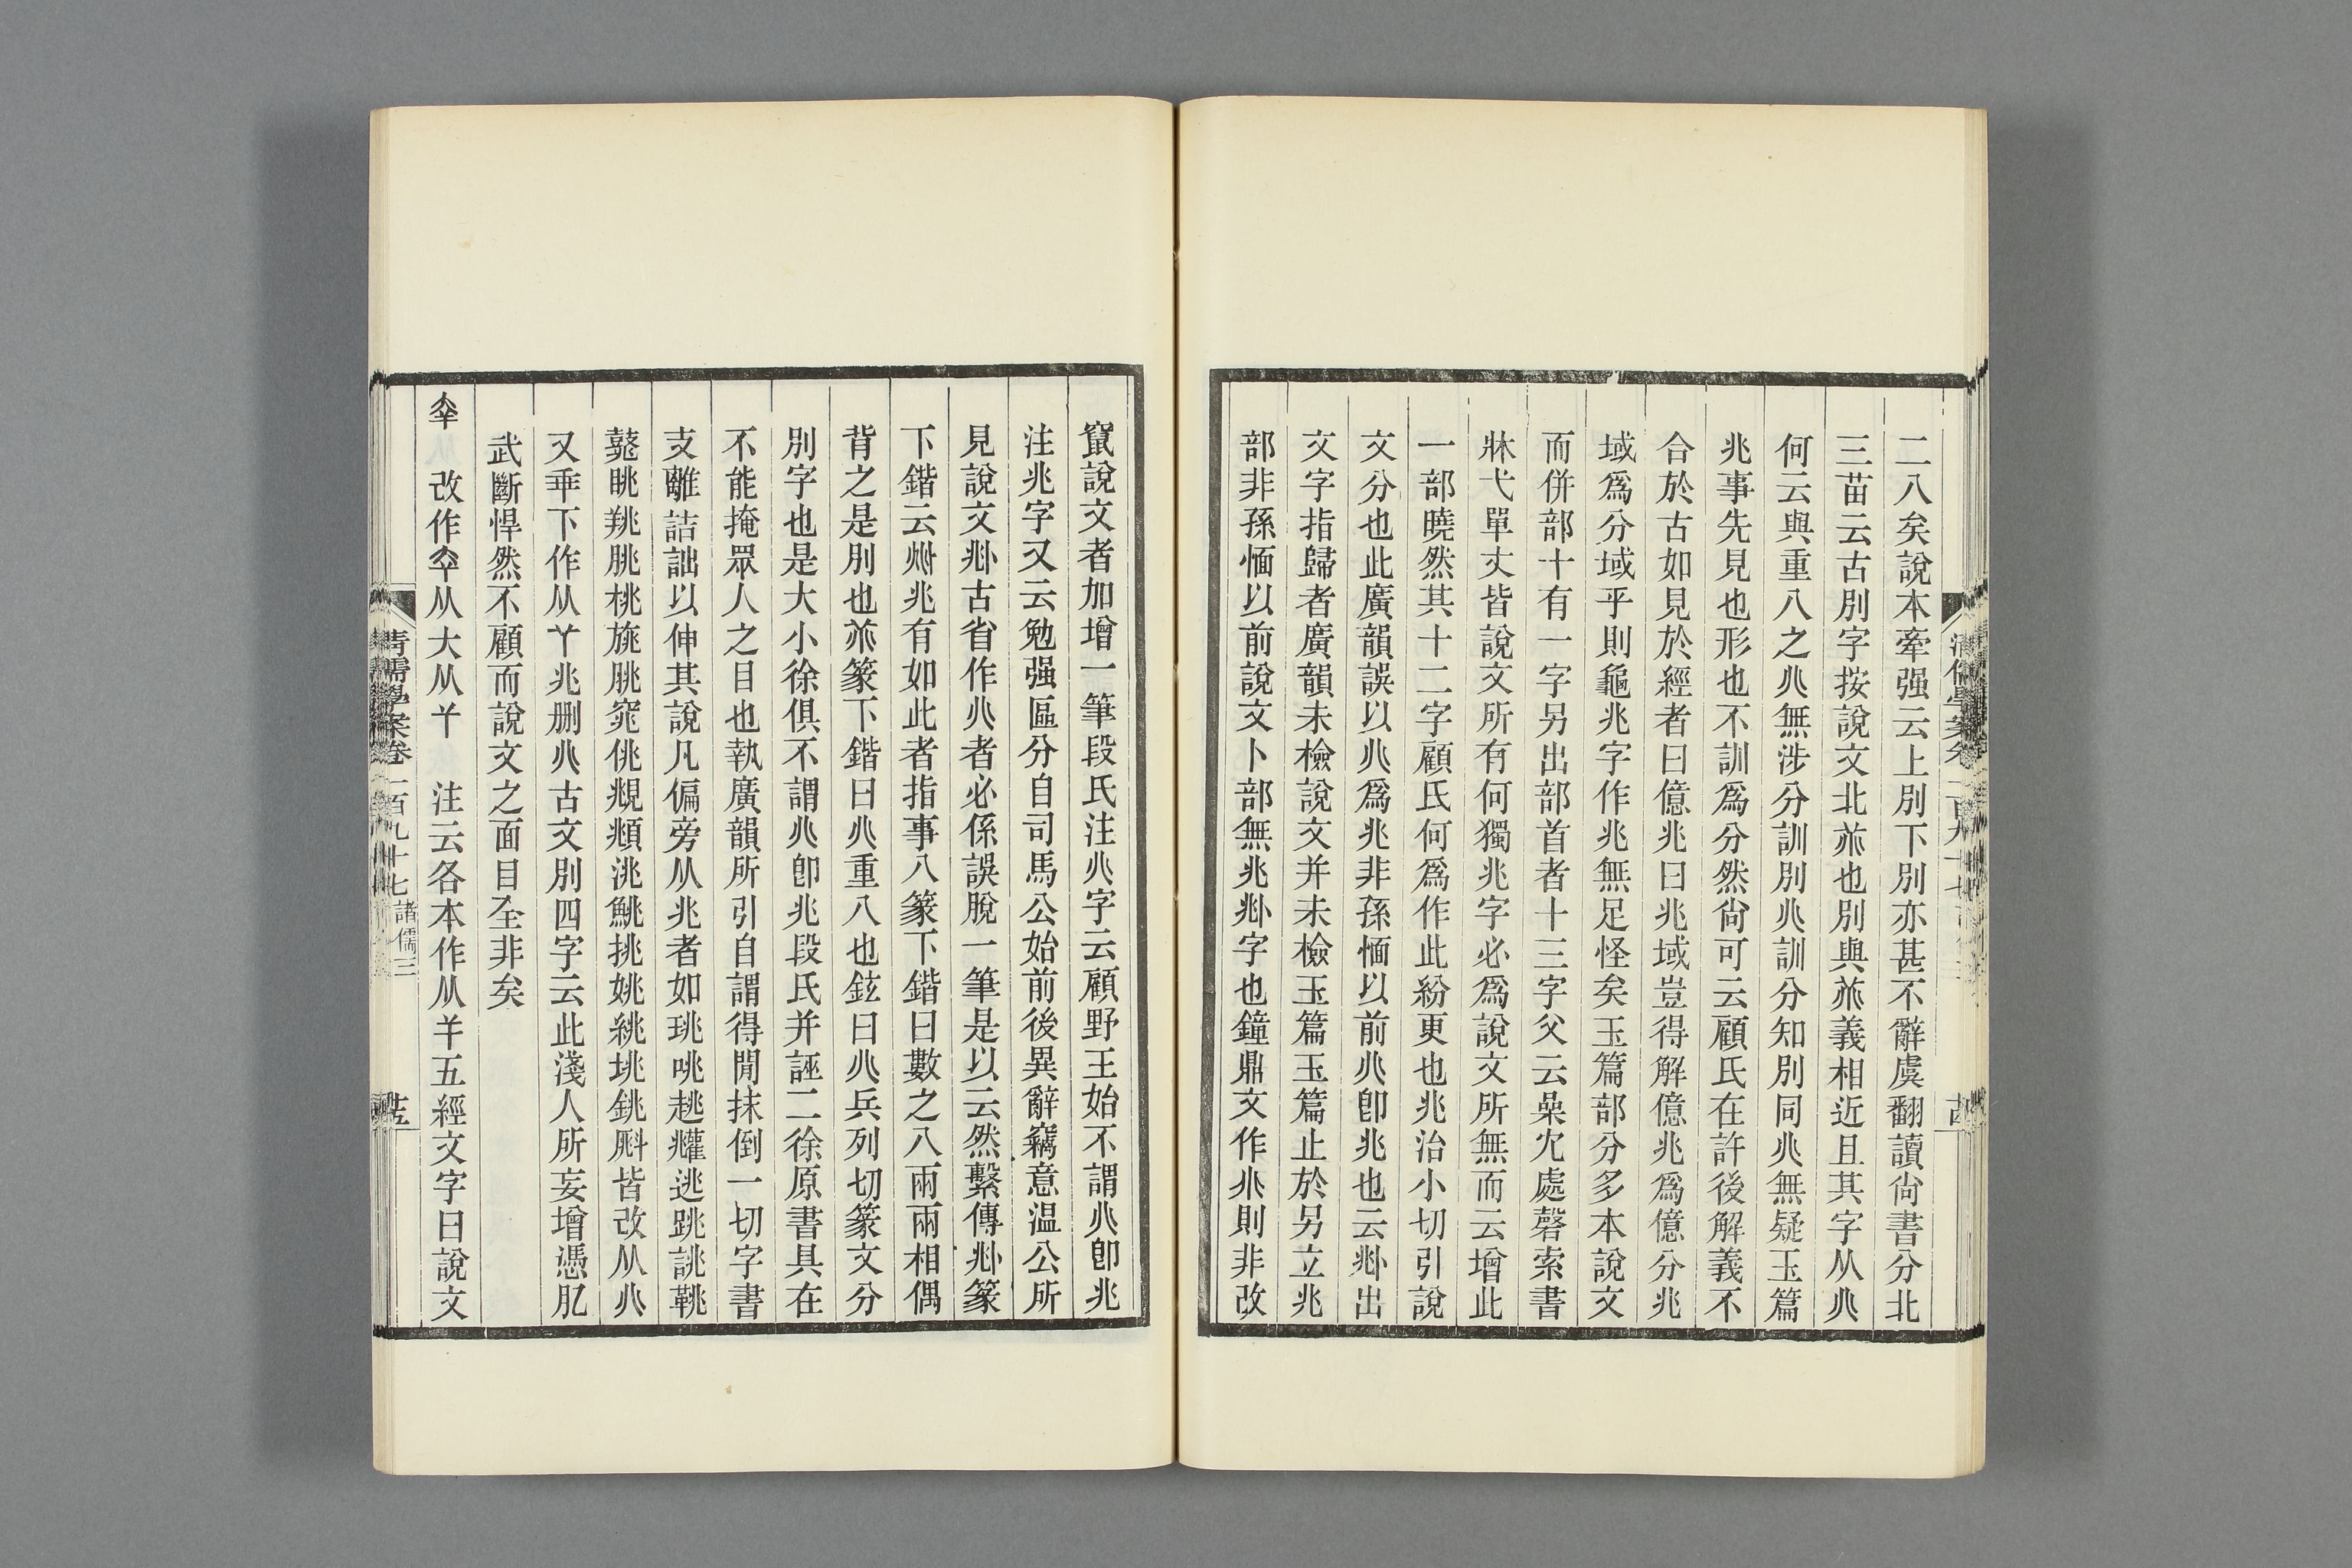 二八矣說本牽强云上別下別亦甚不辭虞翻讀尙書分北
三苗云古別字按說文北𠔁也別與𠔁義相近且其字从𠔁
何云與重八之𠔁無涉分訓別𠔁訓分知別同𠔁無疑玉篇
兆事先見也形也不訓爲分然尙可云顧氏在許後解義不
合於古如見於經者曰億兆曰兆域豈得解億兆爲億分兆
域爲分域乎則龜兆字作兆無足怪矣玉篇部分多本說文
而併部十有一字另出部首者十三字父云喿冘處磬索書
牀弋單丈皆說文所有何獨兆字必爲說文所無而云增此
一部曉然其十二字顧氏何爲作此紛更也兆治小切引說
文分也此廣韻誤以𠔁爲兆非孫愐以前𠔁卽兆也云𠧞出
文字指歸者廣韻未檢說文并未檢玉篇玉篇止於另立兆
部非孫愐以前說文卜部無兆𠧞字也鐘鼎文作兆則非改
竄說文者加增一筆段氏注𠔁字云顧野王始不謂𠔁卽兆
注兆字又云勉强區分自司馬公始前後異辭竊意温公所
見說文𠧞古省作𠔁者必係誤脫一筆是以云然繫傳𠧞篆
下鍇云𠧞兆有如此者指事八篆下鍇曰數之八兩兩相偶
背之是別也𠔁篆下鍇曰𠔁重八也鉉曰𠔁兵列切篆文分
別字也是大小徐俱不謂𠔁卽兆段氏并誣二徐原書具在
不能掩眾人之目也執廣韻所引自謂得閒抹倒一切字書
支離詰詘以伸其說凡偏旁从兆者如珧咷趒𤓀逃跳誂鞉
鼗眺羺脁桃旐朓窕佻覜頫洮鮡挑姚絩垗銚斛皆改从𠔁
又𠦬下作从𠆢兆删𠔁古文別四字云此淺人所妄增憑肊
武斷悍然不顧而說文之面目全非矣
㚔　改作㚔从大从𢆉　注云各本作从羊五經文字曰說文
清儒學案卷一百九十七 諸儒三